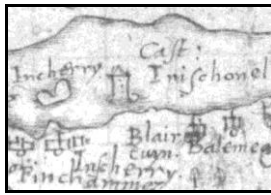 Cast:
Incherry
Inischonel
Blair
cuyn.
Balemeg
Inkcherry
Finchammer